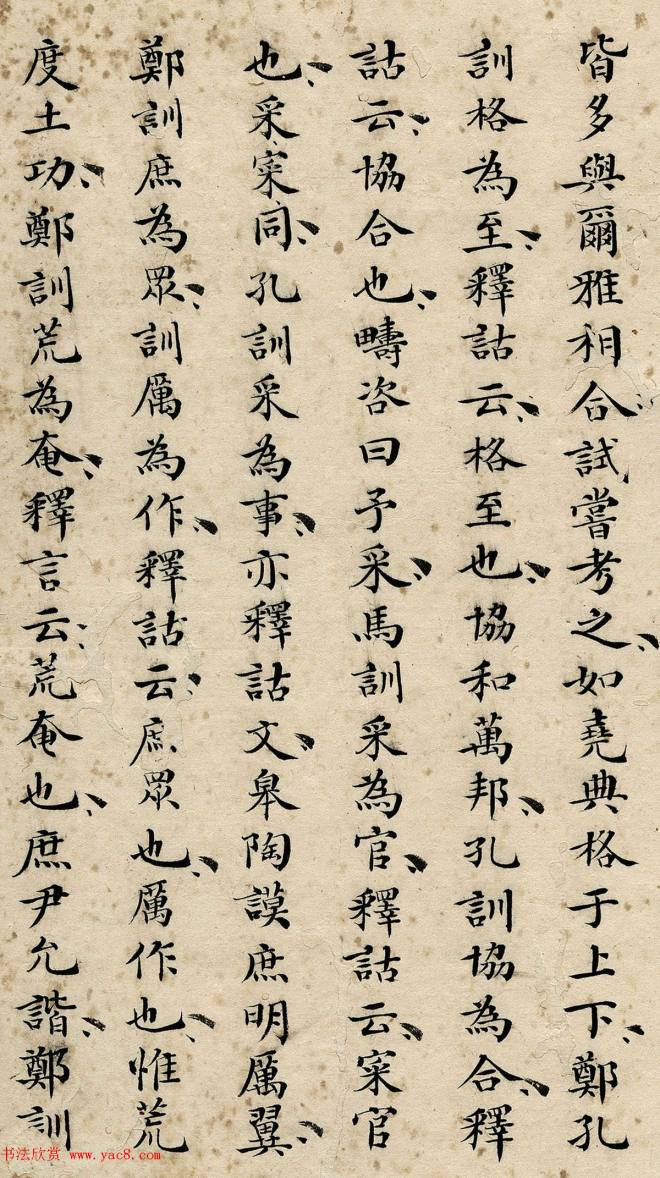 皆多與爾雅相合試嘗考之如堯典格于上下鄭孔
訓格為至釋詁云格至也協和萬邦孔訓協為合釋
詁云協合也疇咨曰予采馬訓采為官釋詁云寀官
也采寀同孔訓采為事亦釋詁文皋陶謨庶明厲翼
鄭訓庶為眾訓厲為作釋詁云庶眾也厲作也惟荒
度土功鄭訓荒為奄釋言云荒奄也庶尹允諧鄭訓
书法欣赏 www.yac8.com